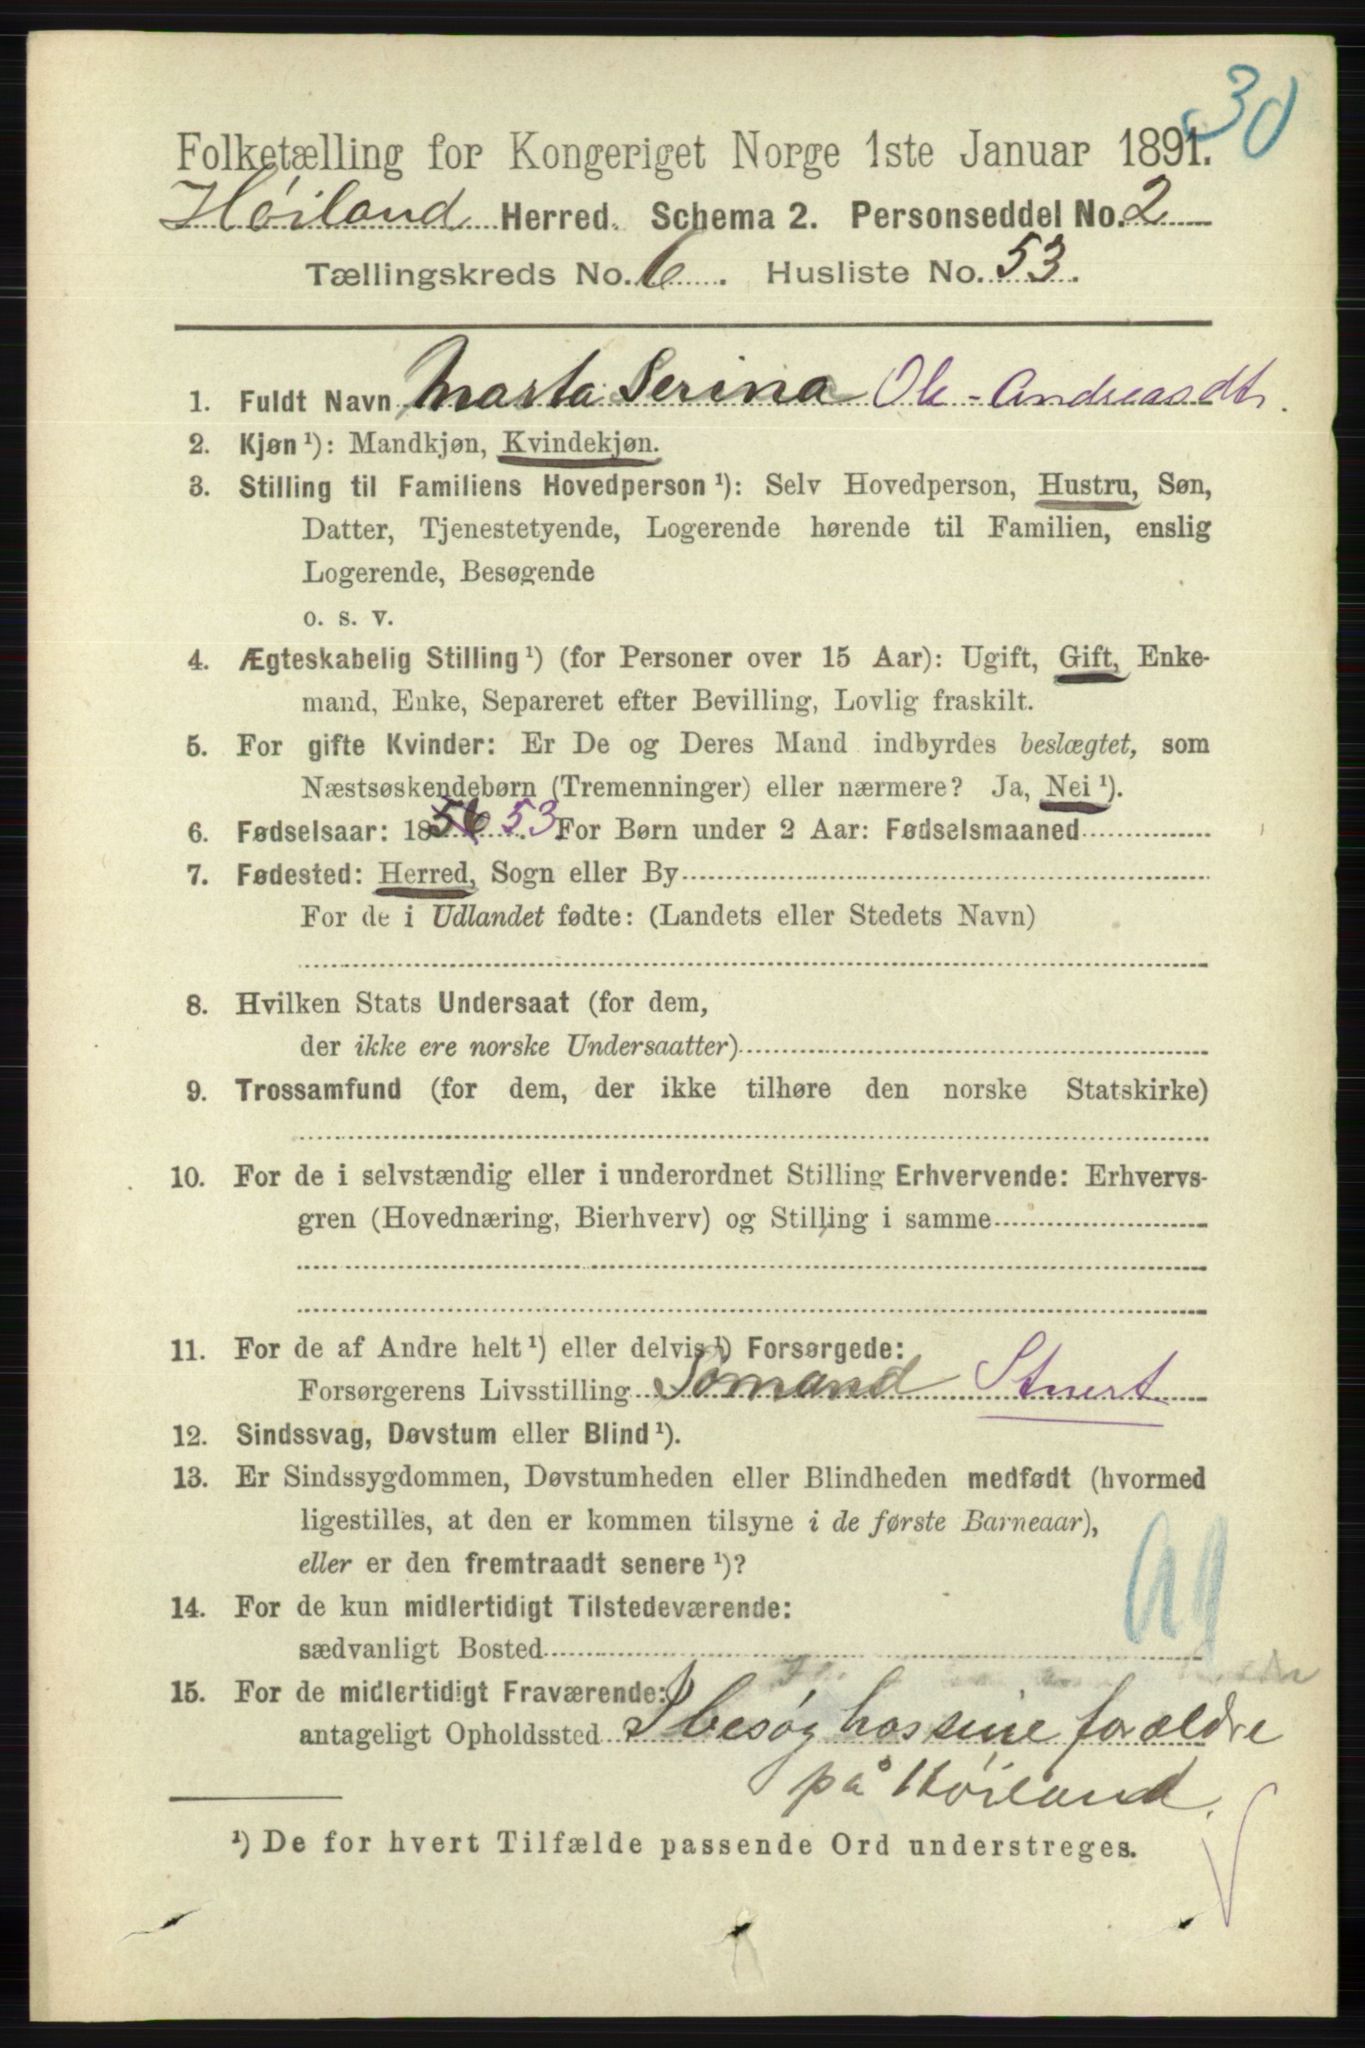 30
Folketælling for Kongeriget Norge 1ste Januar 1891.
Høiland Herred. Schema 2. Personseddel No. 2
Tællingskreds No. 6. Husliste No. 53.
1. Fuldt Navn Marta Serina Ole-Andreasdtr.
2. Kjøn¹): Mandkjøn, Kvindekjøn.
3. Stilling til Familiens Hovedperson¹): Selv Hovedperson, Hustru, Søn,
Datter, Tjenestetyende, Logerende hørende til Familien, enslig
Logerende, Besøgende
o. s. v.
4. Ægteskabelig Stilling¹) (for Personer over 15 Aar): Ugift, Gift, Enke-
mand, Enke, Separeret efter Bevilling, Lovlig fraskilt.
5. For gifte Kvinder: Er De og Deres Mand indbyrdes beslægtet, som
Næstsøskendebørn (Tremenninger) eller nærmere? Ja, Nei¹).
6. Fødselsaar: 1856 53. For Børn under 2 Aar: Fødselsmaaned
7. Fødested: Herred, Sogn eller By
For de i Udlandet fødte: (Landets eller Stedets Navn)
8. Hvilken Stats Undersaat (for dem,
der ikke ere norske Undersaatter)
9. Trossamfund (for dem, der ikke tilhøre den norske Statskirke)
10. For de i selvstændig eller i underordnet Stilling Erhvervende: Erhvervs-
gren (Hovednæring, Bierhverv) og Stilling i samme
11. For de af Andre helt¹) eller delvis¹) Forsørgede:
Forsørgerens Livsstilling Sømand Stuert
12. Sindssvag, Døvstum eller Blind¹).
13. Er Sindssygdommen, Døvstumheden eller Blindheden medfødt (hvormed
ligestilles, at den er kommen tilsyne i de første Barneaar),
eller er den fremtraadt senere¹)?
14. For de kun midlertidigt Tilstedeværende:
sædvanligt Bosted
15. For de midlertidigt Fraværende:
antageligt Opholdssted I besøg hos sine forældre
på Høiland.
¹) De for hvert Tilfælde passende Ord understreges.